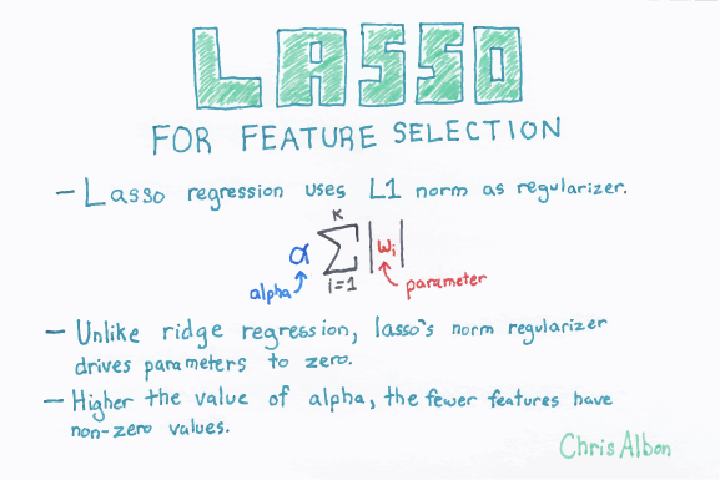 LASSO
FOR FEATURE SELECTION
- Lasso regression uses L1 norm as regularizer.
K
α Σ |wi|
i=1
alpha parameter
- Unlike ridge regression, lasso's norm regularizer
drives parameters to zero.
- Higher the value of alpha, the fewer features have
non-zero values.
Chris Albon